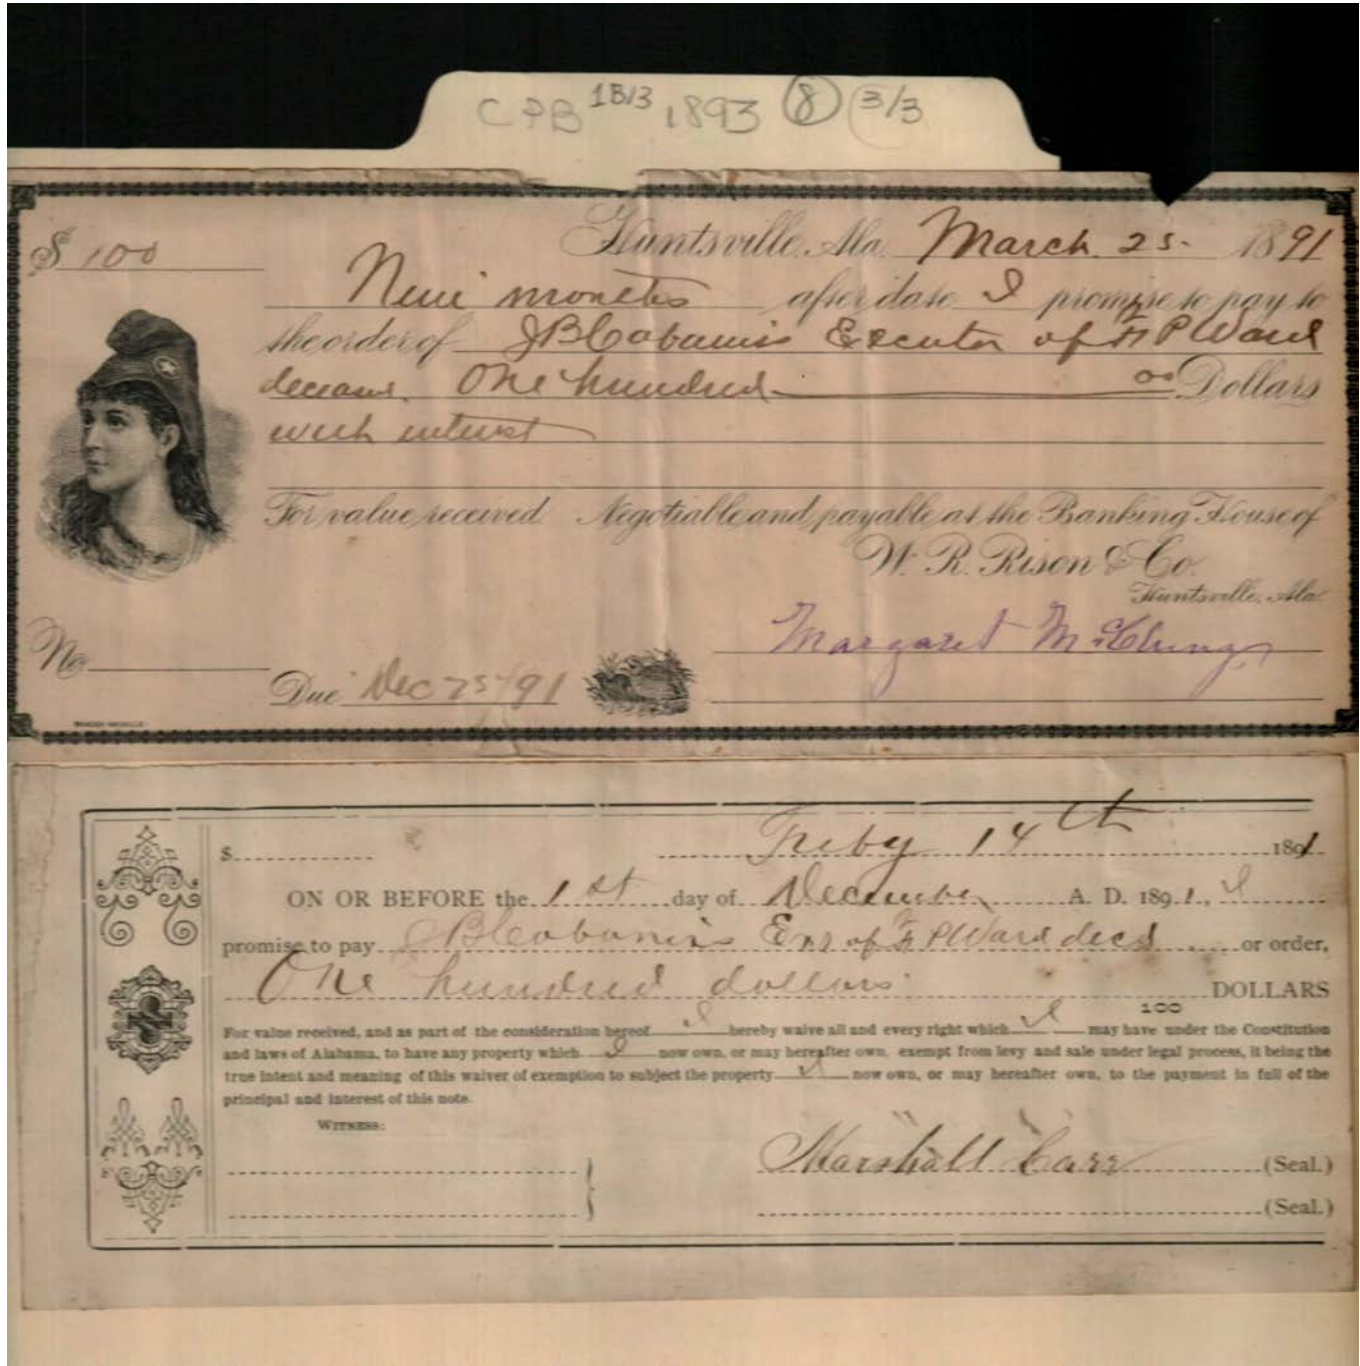 CPB 1B/3 1893 (8) (3/3
$ 100 Huntsville, Ala. March. 25. 1891
Nine months after date I promise to pay to
the order of JB Cabaniss Executor of F P Ward
deceasd. One hundred 00 Dollars
with interest
For value received Negotiable and payable at the Banking House of
W. R. Rison & Co.
Huntsville, Ala.
Margaret McClung
No
Due Dec 25/91
$ Feby 14th 1891
ON OR BEFORE the 1st day of December A. D. 1891, I
promise to pay JB Cabaniss Exr of F P Ward decd or order,
One hundred dollars DOLLARS
100
For value received, and as part of the consideration hereof I hereby waive all and every right which I may have under the Constitution
and laws of Alabama, to have any property which I now own, or may hereafter own, exempt from levy and sale under legal process, it being the
true intent and meaning of this waiver of exemption to subject the property I now own, or may hereafter own, to the payment in full of the
principal and interest of this note.
WITNESS:
Marshall Carr (Seal.)
(Seal.)